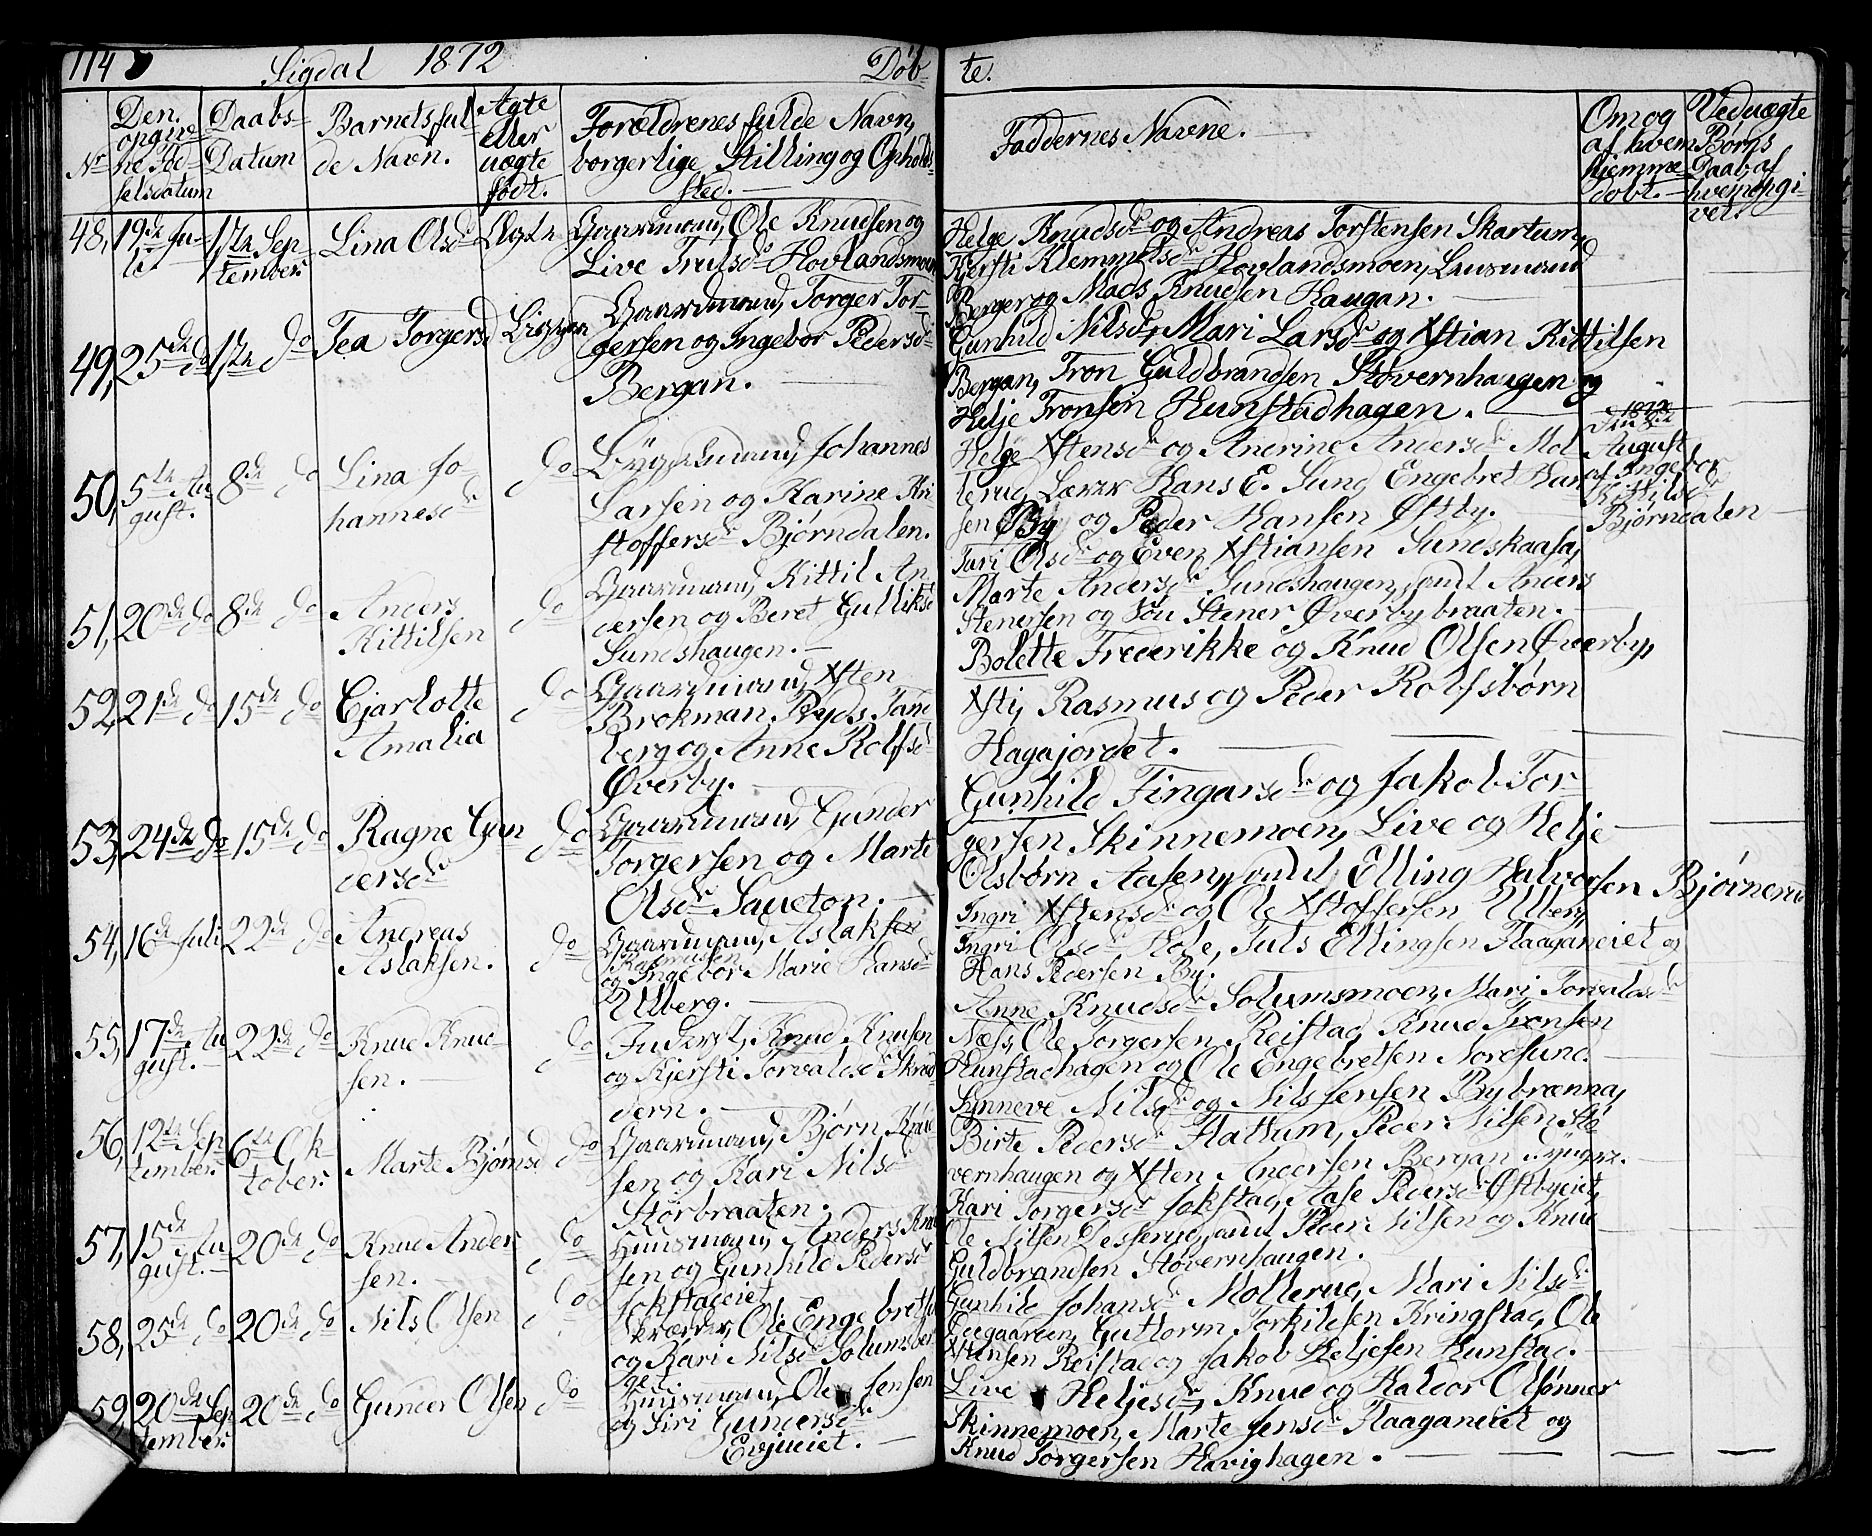 114
Sigdal 1872
Døb-
te.
Nr
Den opgivne Fødselsdatum
Daabs-Datum
Barnets fulde Navn.
Ægte eller uægte født.
Forældrenes fulde Navn, borgerlige Stilling og Opholdssted.
Faddernes Navne.
Om og af hvem hjemmedøbt.
Ved uægte Børns Daab af hvem opgivet.
48, 19de Juli
17de September
Lina Olsd
Ægte
Gaardmand, Ole Knudsen og
Live Trulsd Hovlandsmoen
Helge Knudsd og Andreas Torstensen Skartum,
Kjersti Klemmetsd Hovlandsmoen, Lensmand
Berger og Mads Knudsen Haugan.
49, 25de do
17de do
Tea Torgersd
Gaardmand, Torger Tor-
gersen og Ingebor Pedersd
Bergan.
Gunhild Nilsd, Mari Larsd og Xstian Kittilsen
Bergan, Tron Guldbrandsen Støvernhaugen og
Helje Tronsen Hunstadhagen.
50, 5te August.
8de do
Lina Jo-
hannesd
do
Johannes
Larsen og Karine Kri
stoffersd Bjørndalen.
Helge Xstensd og Anerine Andersd Mol
lerud, Lærer Hans E. Sund, Engebret Han
sen By og Peder Hansen Østby.
1872
den 8de
August
af Ingebor
Kittilsd
Bjørndalen
51, 20de do
8de do
Anders
Kittilsen
do
Gaardmand, Kittil An
dersen og Beret Gulliksd
Sundshaugen.
Turi Olsd og Even Xstiansen Sundskaasa,
Marte Andersd Sundshaugen, samt Anders
Stenersen og Stener Øverbybraaten.
52, 21de do
15de do
Cjarlotte
Amalia
do
Gaardmand, Xsten
Brokman Ryds Tand
berg og Anne Rolfsd
Øverby.
Bolette Frederikke og Knud Olsen Øverby,
Xsti, Rasmus og Peder Rolfsbørn
Hagajordet.
53, 24de do
15de do
Ragne Gun
dersd
do
Gaardmand, Gunder
Torgersen og Marte
Olsd Saueton.
Gunhild Fingarsd og Jakob Tor
gersen Skinnemoen, Live og Helje
Olsbørn Aasen, samt Elling Halvorsen Bjørnerud
54, 16de Juli
22de do
Andreas
Aslaksen.
do
Gaardmand, Aslak
Rasmusen
og Ingebor Marie Hansd
Ulberg.
Ingri Xstensd og Ole Xstoffersen Ulberg,
Ingri Olsd Hole, Tuls Ellingsen Flaaganeiet og
Hans Pedersen By.
55, 17de August.
22de do
Knud Knud-
sen.
do
Inderst, Knud Knudsen
og Kjersti Torvaldsd Skred
dern.
Anne Knudsd Solumsmoen, Mari Torvaldsd
Næss, Ole Torgersen Reistad, Knud Tronsen
Hunstadhagen og Ole Engebretsen Nordsund.
56, 12te September
6te Oktober
Marte Bjørnsd
do
Gaardmand, Bjørn
sen og Kari Nilsd
Storbraaten.
Synneve Nilsd og Nils Jensen Bybrænna,
Birte Pedersd Flattum, Peder Nilsen Stø
vernhaugen og Xsten Andersen Bergan
57, 15de August.
20de do
Knud Ander
sen.
do
Huusmand, Anders Knud
sen og Gunhild Pedersd
Jokstadeiet
Kari Torgersd Jokstad, Aase Pedersd Østbyeiet,
Ole Nilsen Desserud, samt Peder Nilsen og Knud
Guldbrandsen Støvernhaugen.
58, 25de do
20de do
Nils Olsen
do
Skrædder, Ole Engebretsen
og Kari Nilsd Solumsber
get.
Gunhild Johansd Mollerud, Mari Nilsd
Guttorm Torkildsen Kringstad, Ole
Xstensen Reistad og Jakob Heljesen Hunstad.
59, 20de September
20de do
Gunder Olsen
do
Huusmand, Ole Jensen
og Siri Gundersd
Evjueiet.
Live Heljesd, Knud og Haldor Olsønner
Skinnemoen, Marte Jensd Flaaganeiet og
Knud Torgersen Havighagen.